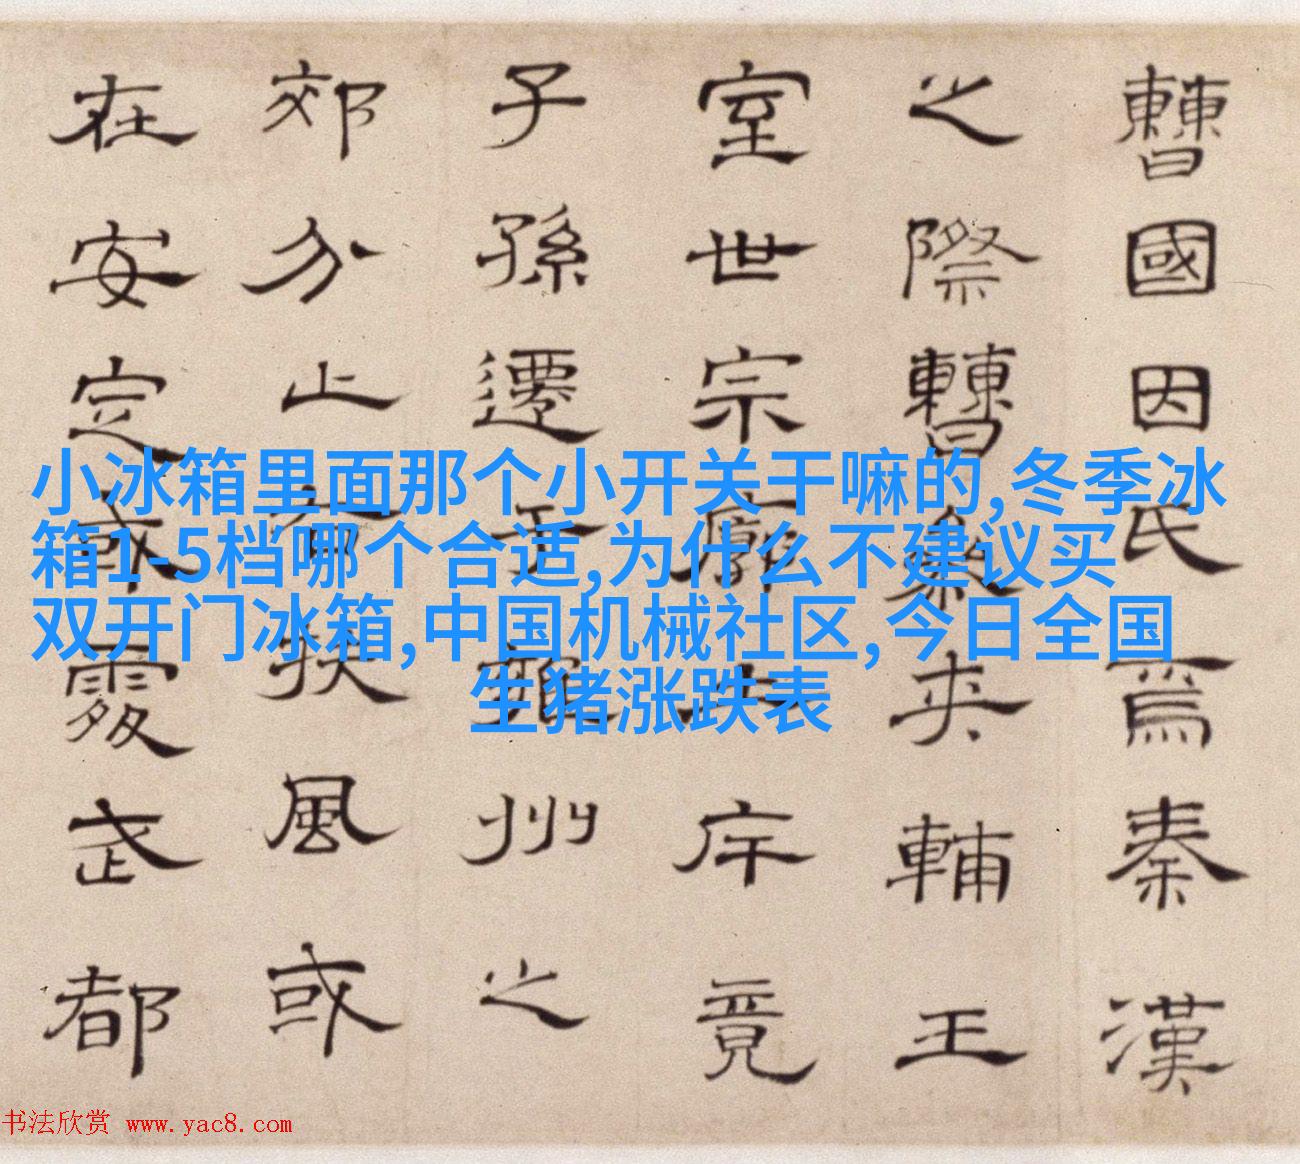 曹國因氏焉秦漢
之際曹參夾輔王
室世宗廓土斥竟
子孫遷于雍州之
郊分止右扶風或
在安定或處武都
小冰箱里面那个小开关干嘛的,冬季冰
箱1-5档哪个合适,为什么不建议买
双开门冰箱,中国机械社区,今日全国
生猪涨跌表
书法欣赏 www.yac8.com